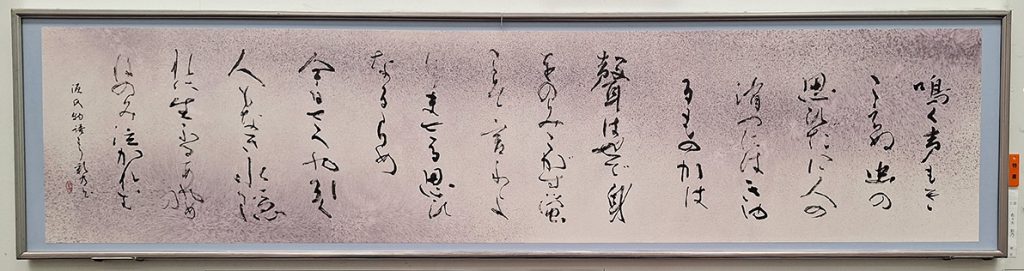 鳴く声もき
こえぬ虫の
思ひだに人の
消つにはきゆ
るものかは
聲はせで身
をのみこがす蛍
こそ言ふよ
りまさる思ひ
なるらめ
今日さへや引く
人もなき水隠
れに生ふるあやめ
のねのみ泣かれむ
源氏物語より